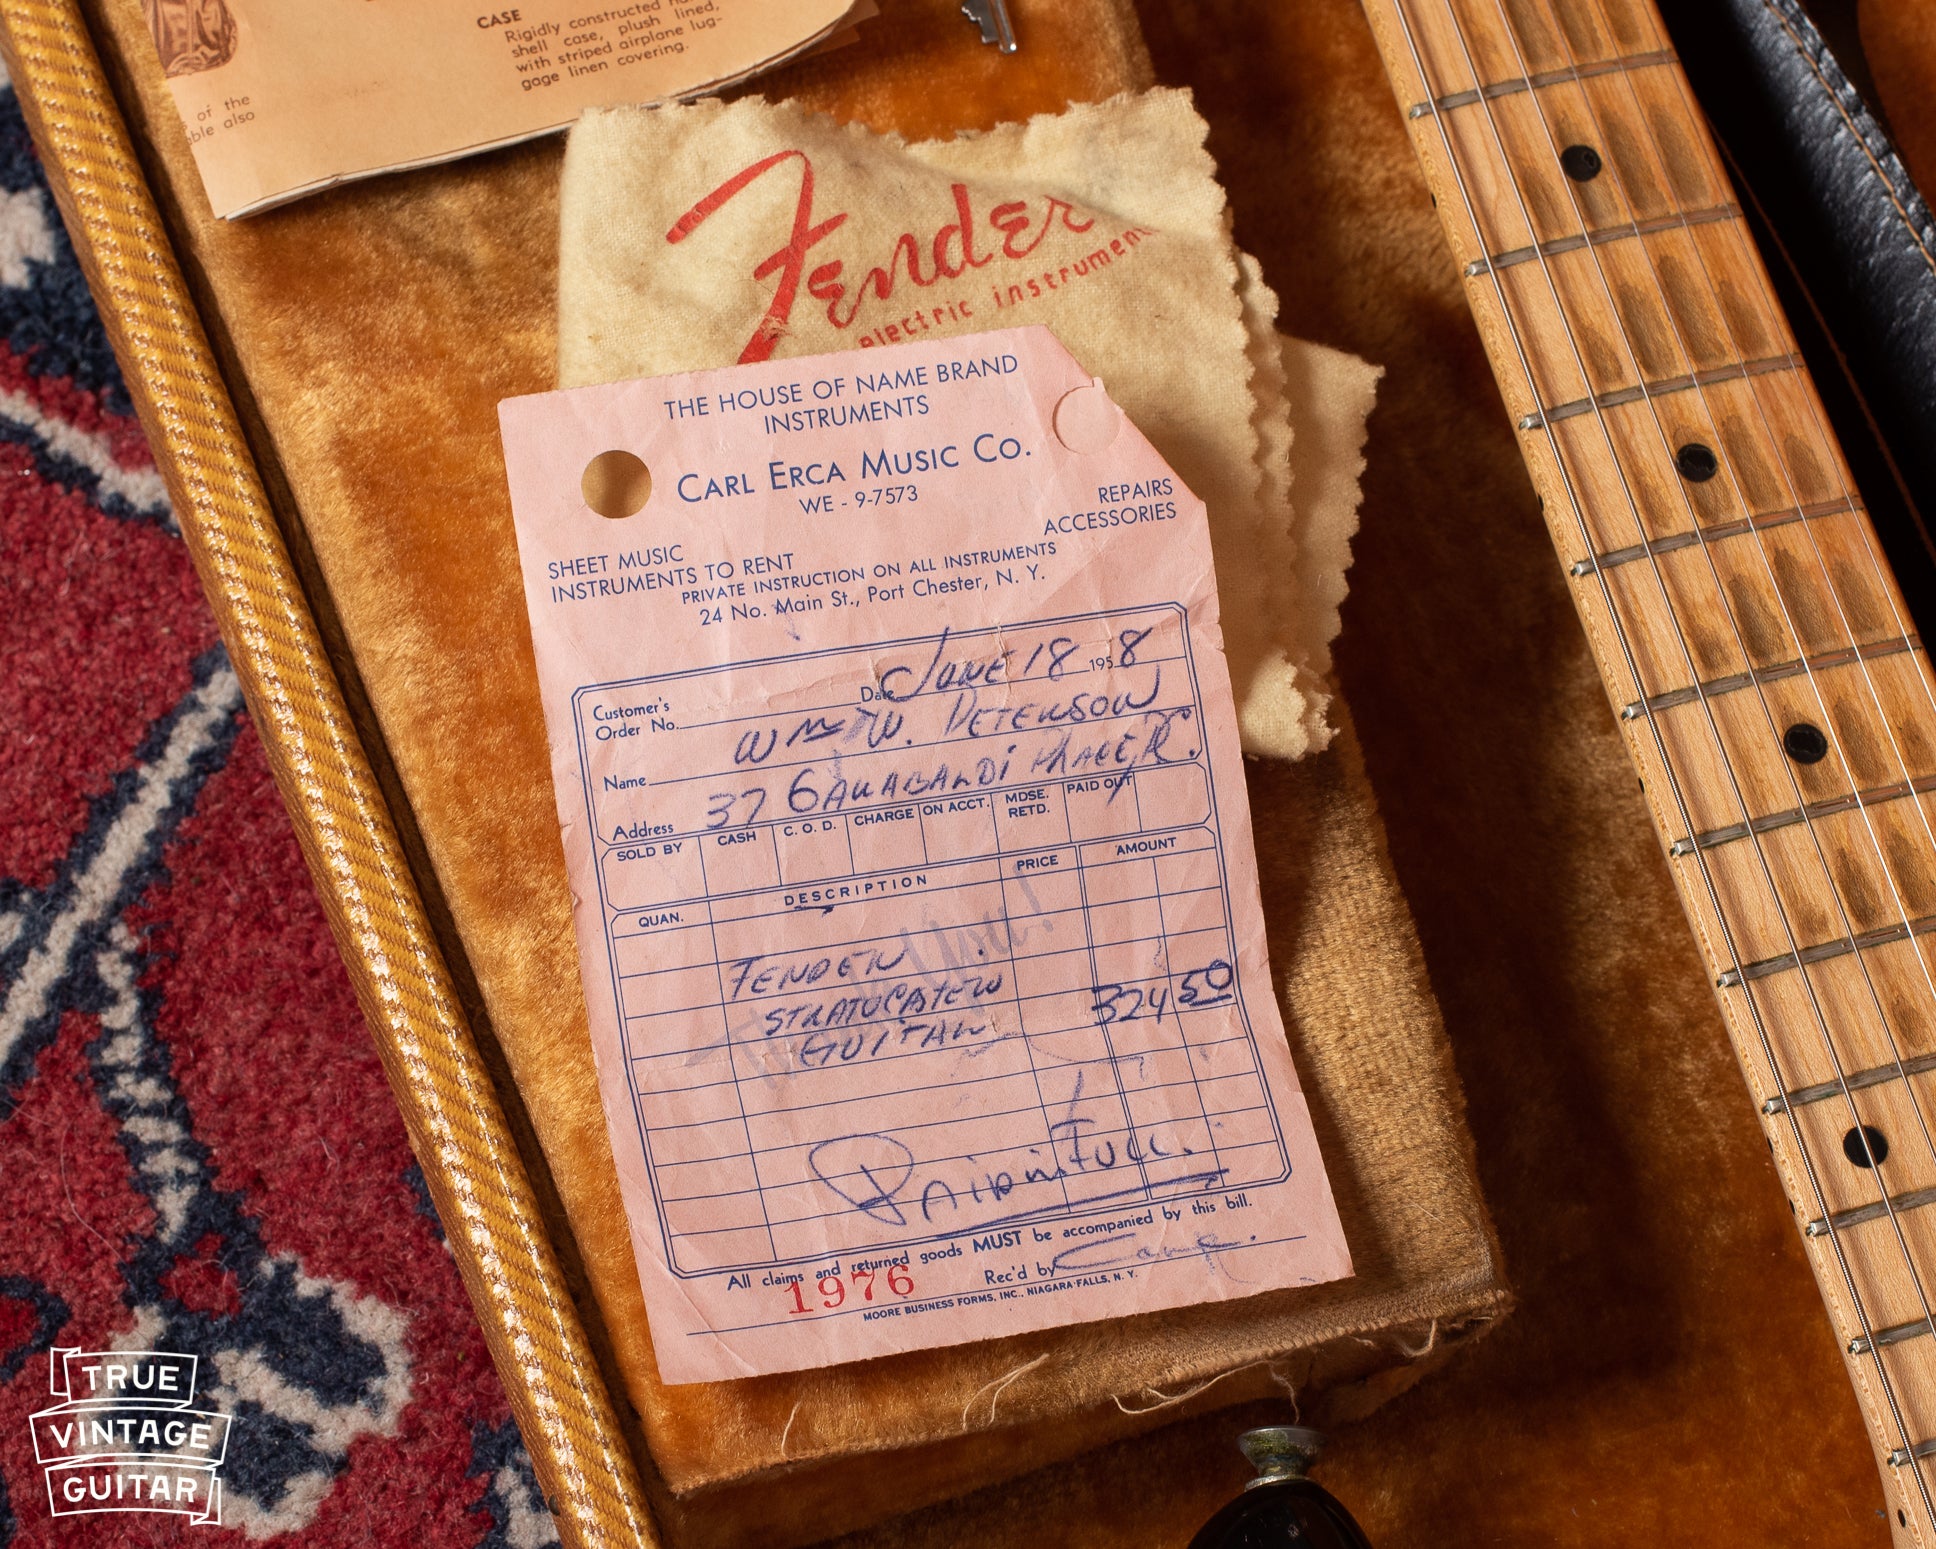 CASE
Rigidly constructed
shell case, plush lined,
with striped airplane lug-
gage linen covering.
of the
ble also
Fender
electric instrument
THE HOUSE OF NAME BRAND
INSTRUMENTS
CARL ERCA MUSIC CO.
WE - 9-7573
REPAIRS
ACCESSORIES
SHEET MUSIC
INSTRUMENTS TO RENT
PRIVATE INSTRUCTION ON ALL INSTRUMENTS
24 No. Main St., Port Chester, N. Y.
Customer's
Order No. Date June 18 1958
Name Wm W. Peterson
Address 37 Garabaldi Place, P.C.
SOLD BY CASH C. O. D. CHARGE ON ACCT. MDSE. RETD. PAID OUT
QUAN. DESCRIPTION PRICE AMOUNT
Thank You!
FENDER
STRATOCASTER 324 50
GUITAR
Paid in Full.
All claims and returned goods MUST be accompanied by this bill.
1976 Rec'd by
MOORE BUSINESS FORMS, INC., NIAGARA FALLS, N. Y.
TRUE
VINTAGE
GUITAR